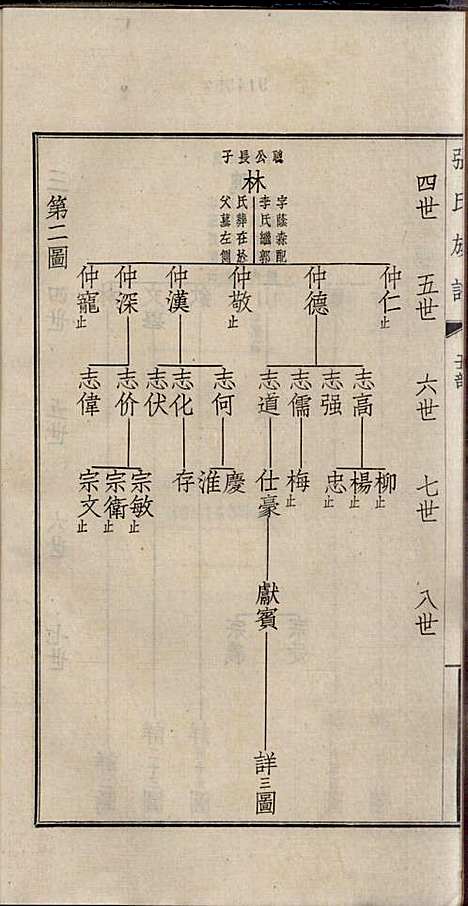 張氏族譜
四世
五世
六世
七世
八世
聰公長子
林
字蔭森配
李氏繼郭
氏葬在於
父墓左側
仲仁止
仲德
仲敬止
仲漢
仲深
仲寵止
志高
志强
志儒
志道
志何
志化
志伏
志价
志偉
柳止
楊止
忠止
梅止
仕豪
慶
淮
存
宗敏止
宗衛止
宗文止
獻賓
詳三圖
第二圖